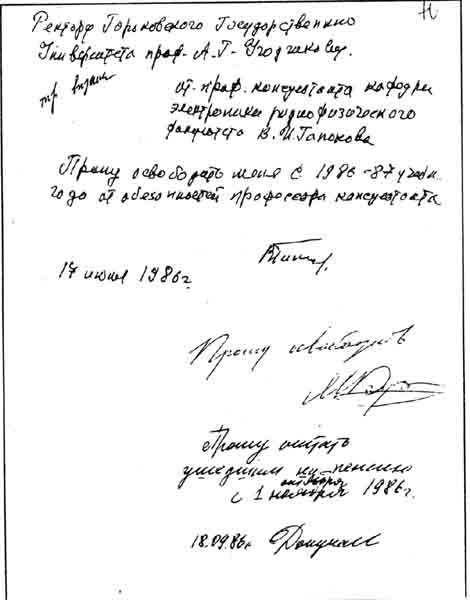 Ректору Горьковского Государственно
Университета проф. А.Г. Угодчикову.
от проф. консультанта кафедры
электроники радиофизического
факультета В.И. Гапонова
Прошу освободить меня с 1986-87 учебн.
года от обязанностей профессора консультанта
17 июня 1986г.
Прошу освободить
Прошу считать
ушедшим на пенсию
октября
с 1 ноября 1986г.
18.09.86г.